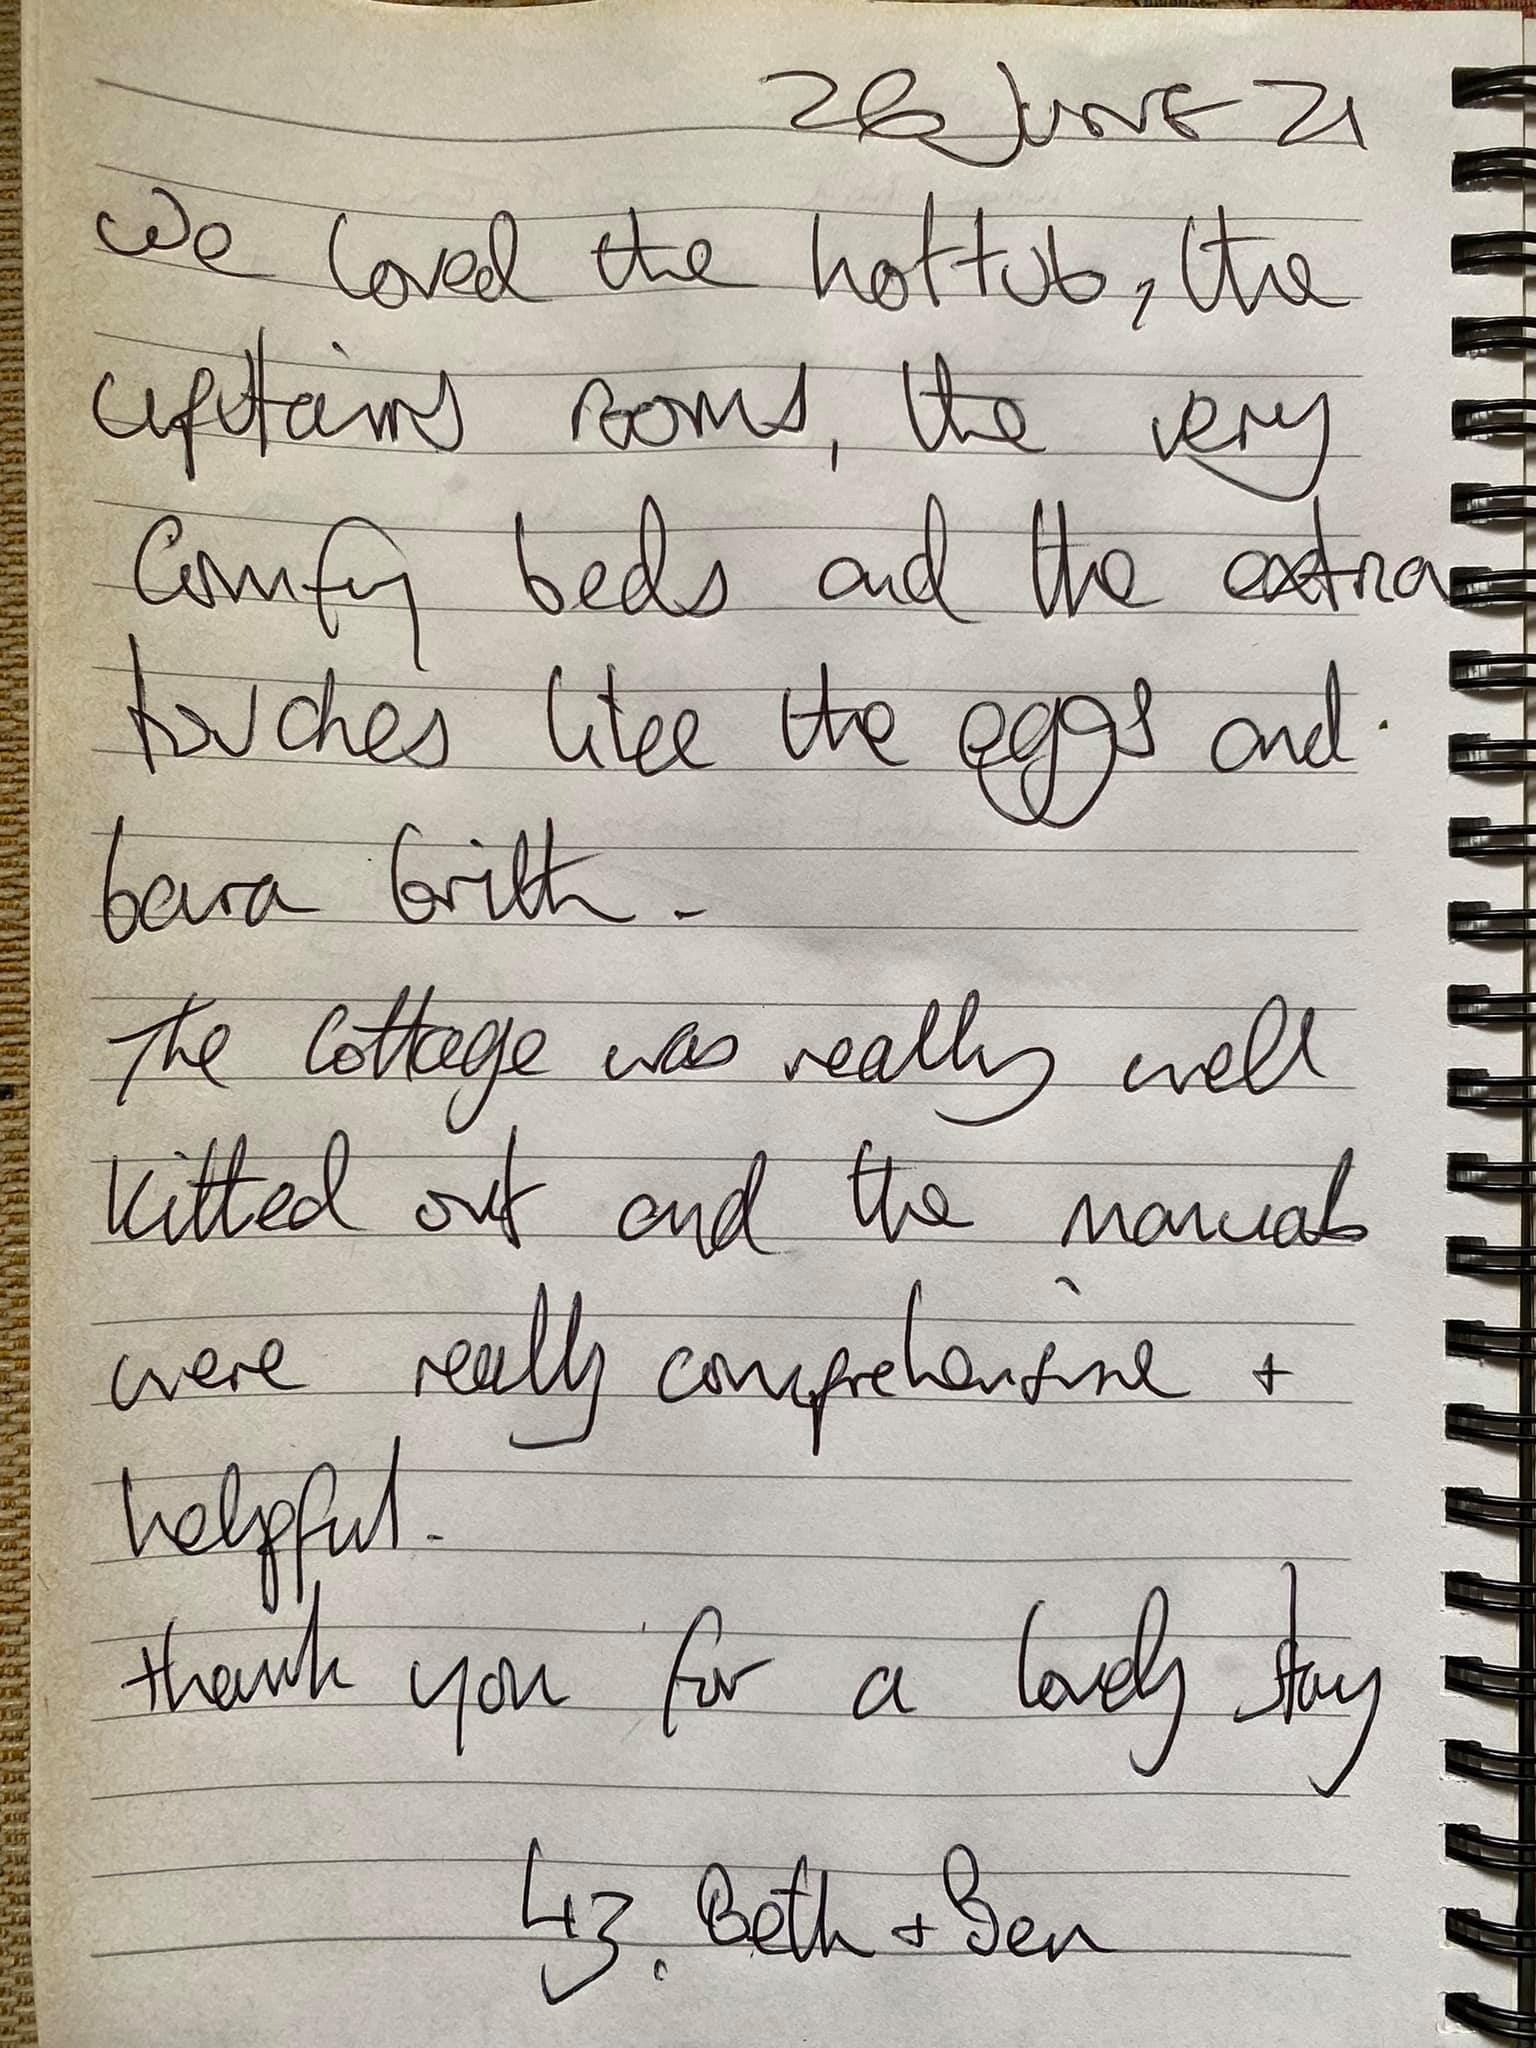 28 June 21
We loved the hottub, the
upstairs rooms, the very
Comfy beds and the extra
touches like the eggs and
bara brith.
The cottage was really well
kitted out and the manuals
were really comprehensive +
helpful.
thank you for a lovely stay
Liz, Beth + Ben